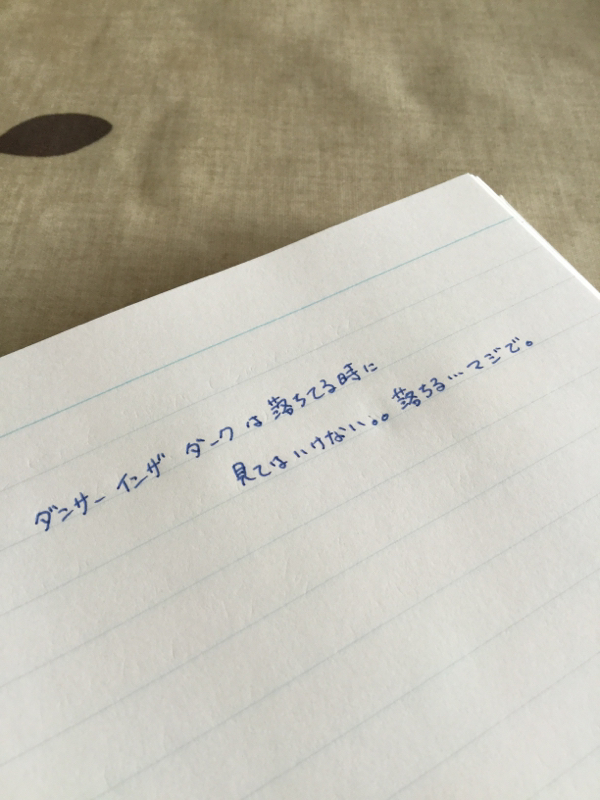 ダンサー インザ ダークは落ちてる時に
見てはいけない。。落ちる…マジで。